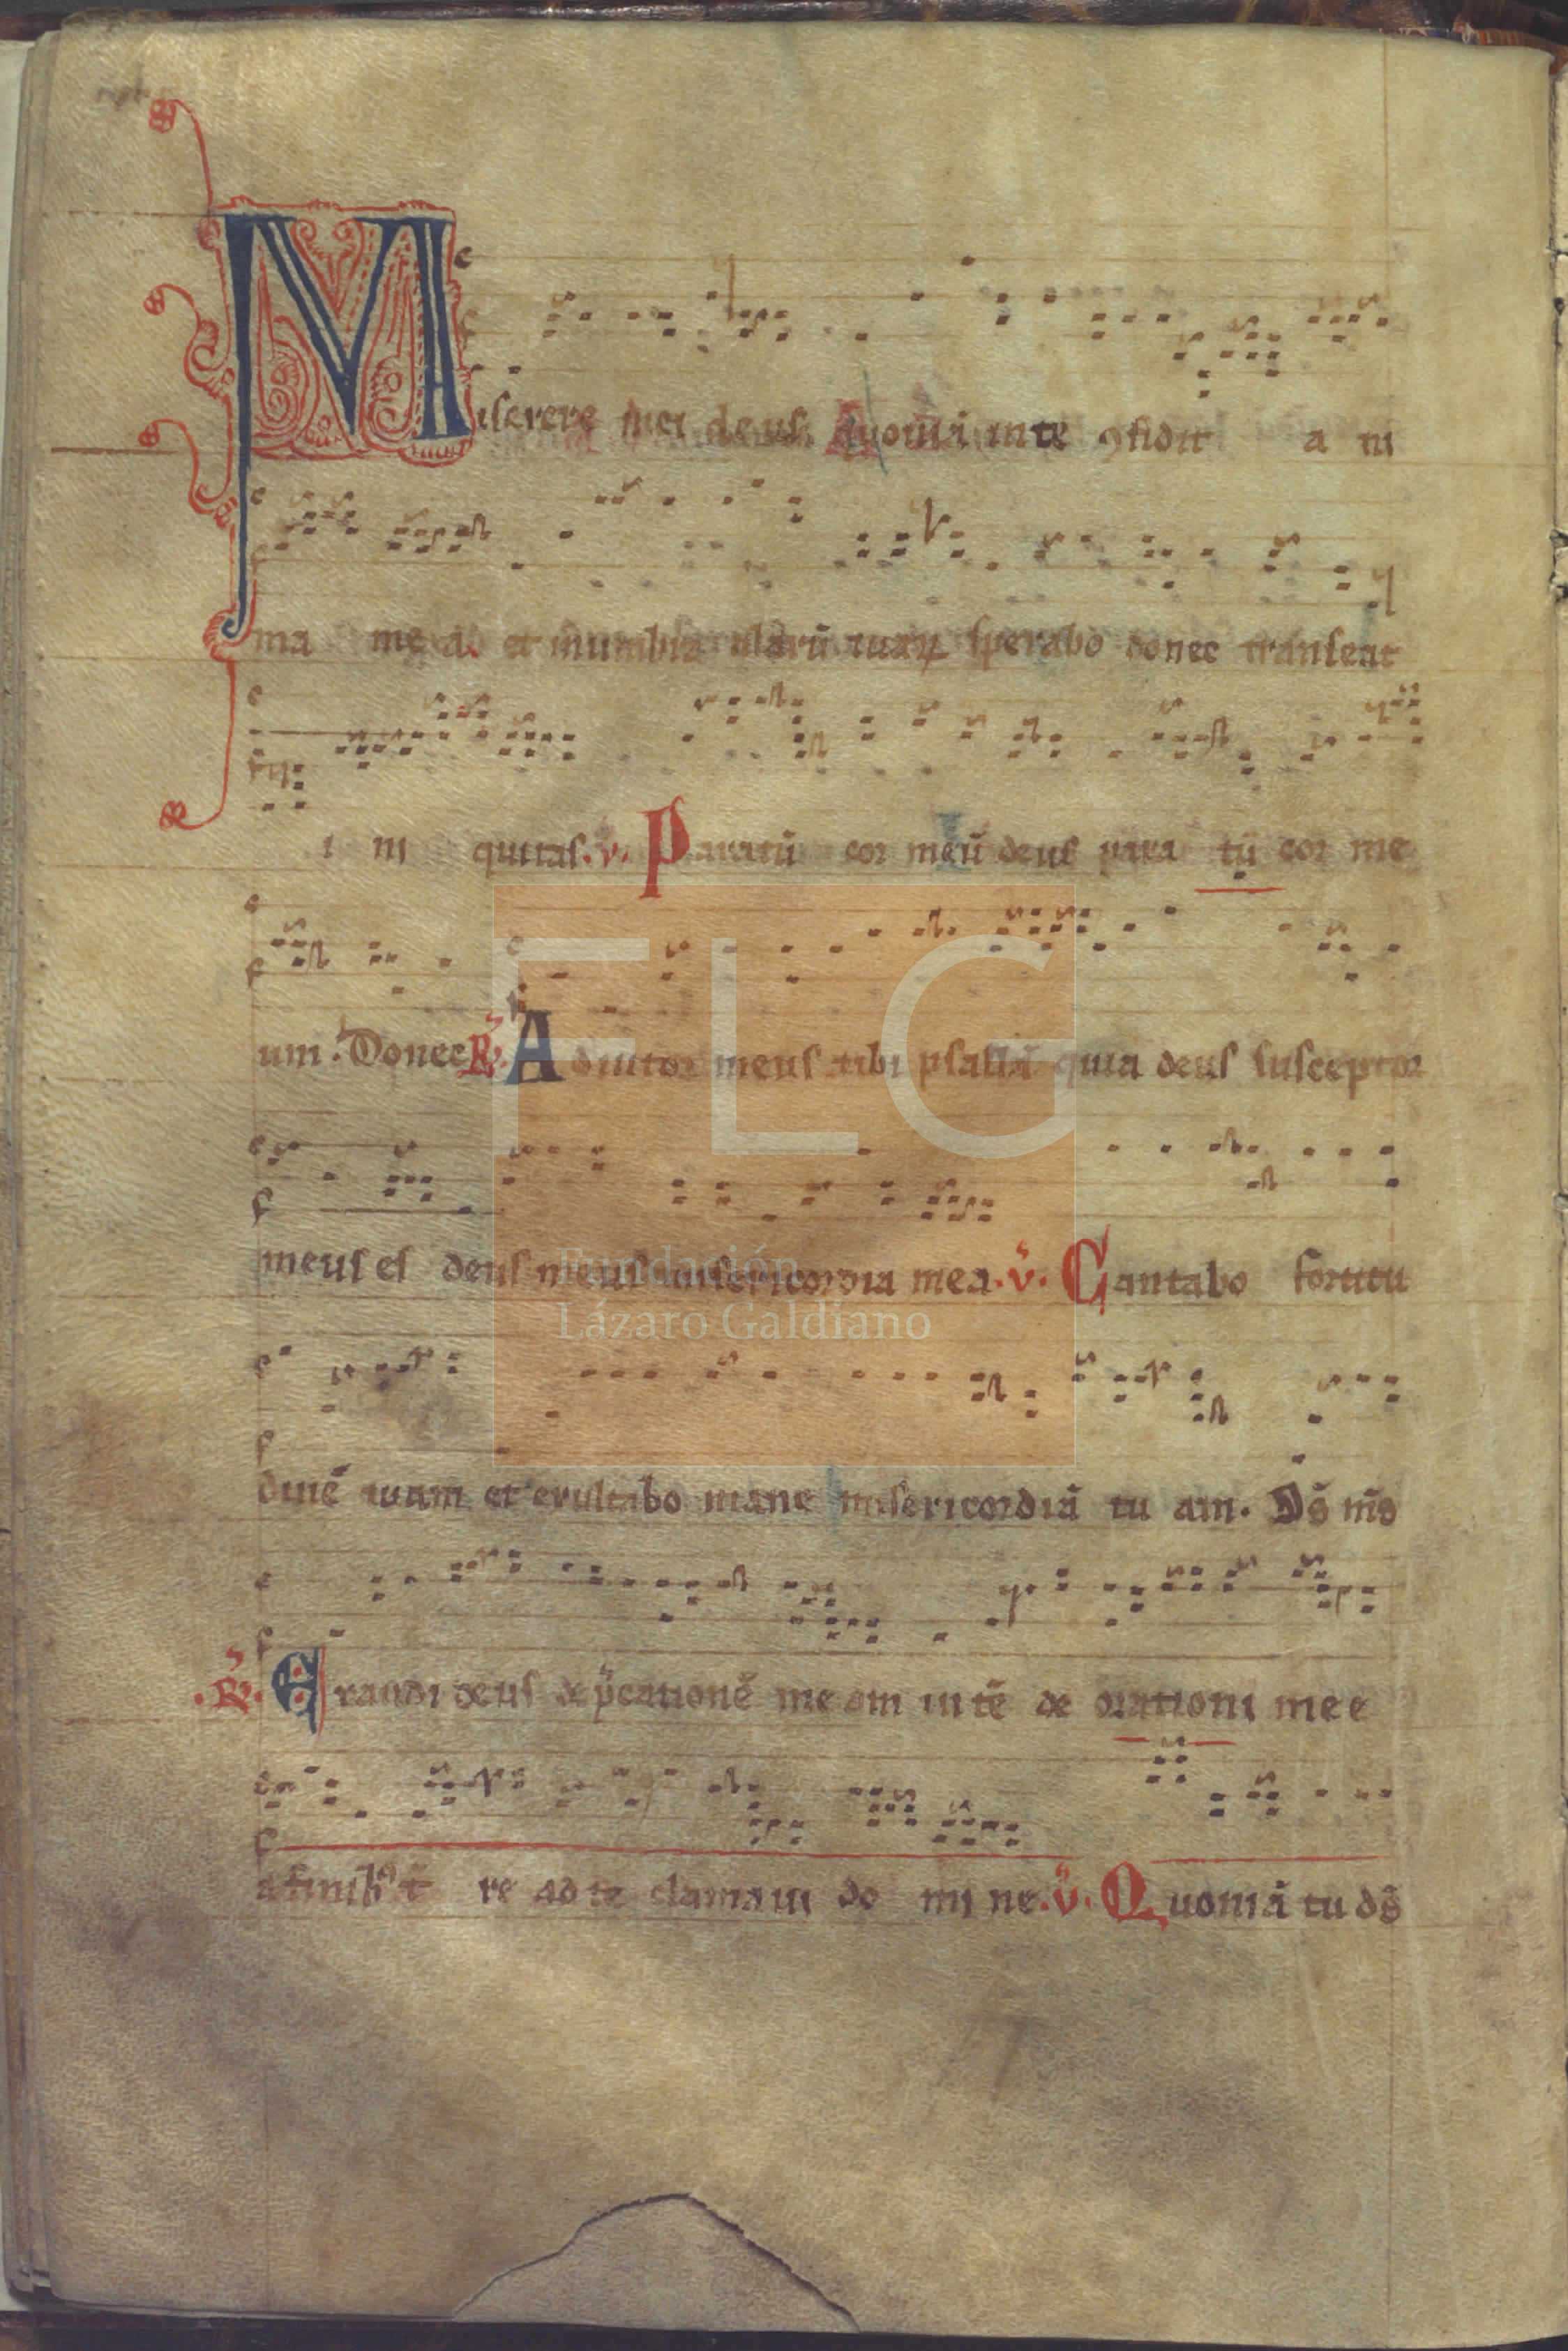 Miserere mei deus Quoniā in te ꝯfidit a ni
ma mea. et in umbra alarū tuaꝝ sperabo donec transeat
i ni quitas. v. Paratū cor meū deus para tū cor me
um. Donec R̃. Adiutor meus tibi psallā quia deus susceptor
meus es deus meus misericordia mea. v̄. Cantabo fortitu
dinē tuam et exultabo mane misericordiā tu am. Ds̄ ms̄
R̃. Exaudi deus dep̄cationē me am intēde orationi mee
a finibꝰ t̄ re ad te clamaui do mi ne. v̄. Quoniā tu ds̄
FLG
Fundación
Lázaro Galdiano